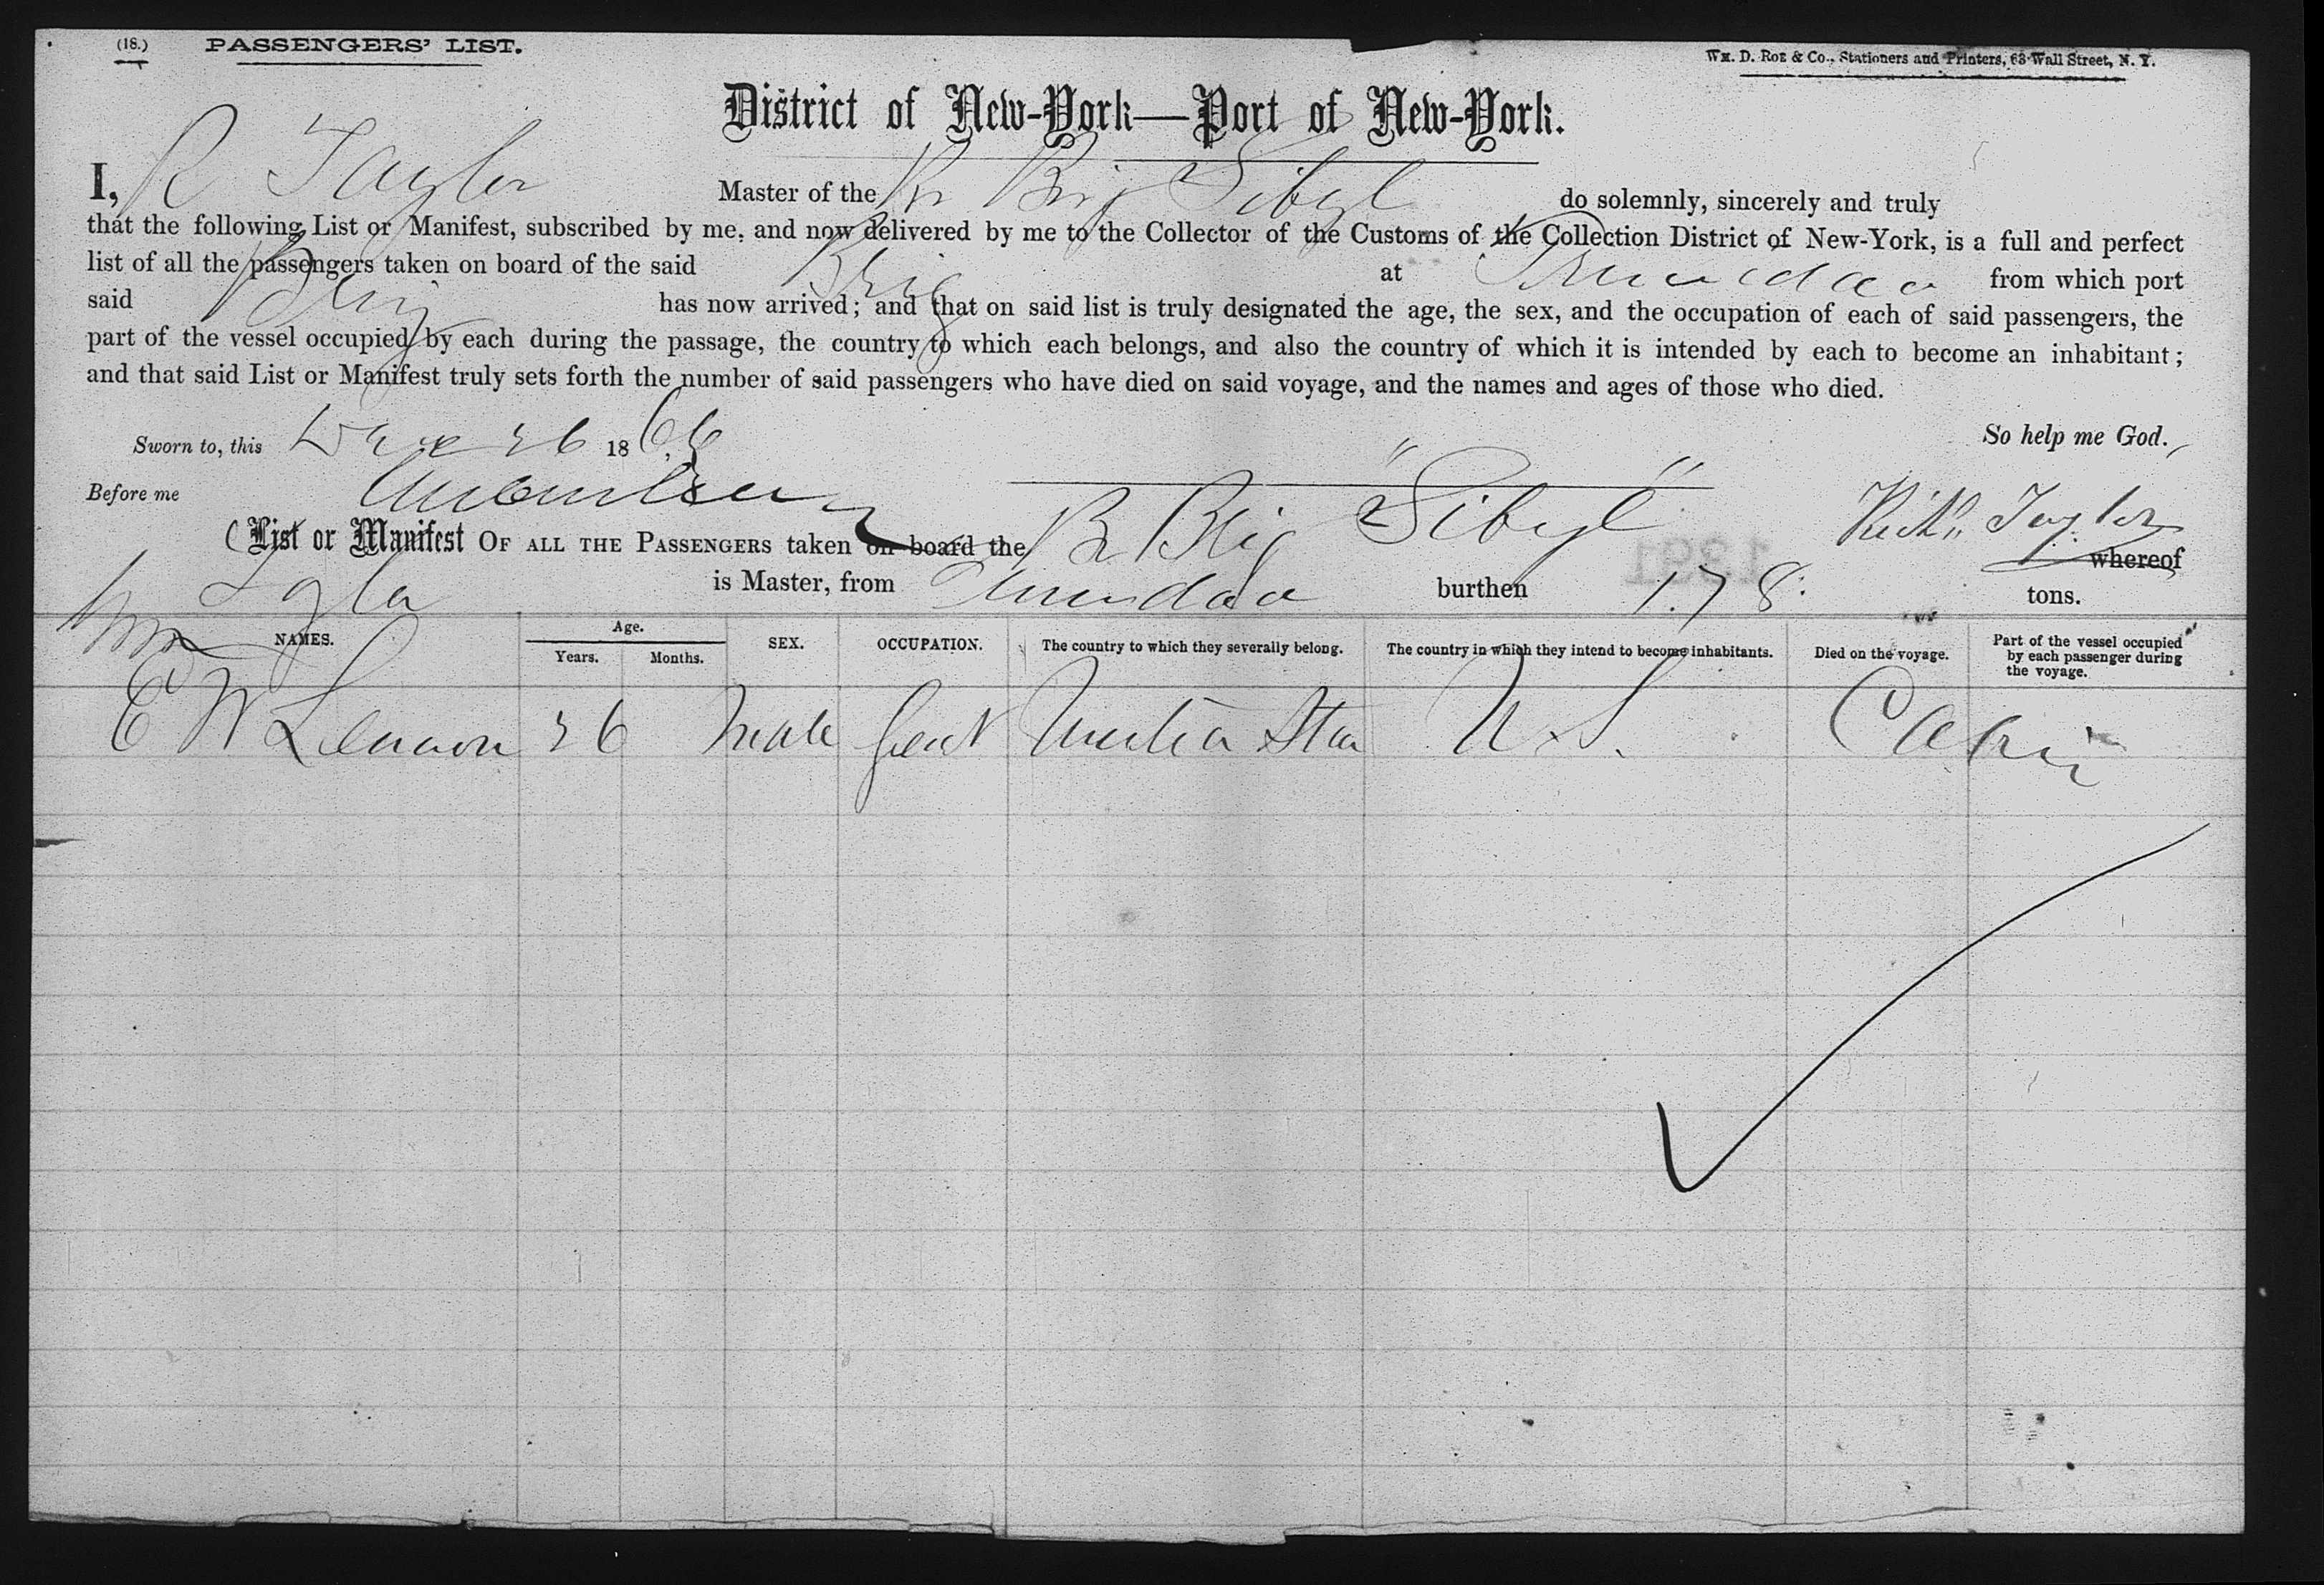 (18.) PASSENGERS' LIST.
WM. D. ROE & CO., Stationers and Printers, 63 Wall Street, N. Y.
District of New-York—Port of New-York.
I, R Taylor Master of the Br Brig Sibyl do solemnly, sincerely and truly
that the following List or Manifest, subscribed by me, and now delivered by me to the Collector of the Customs of the Collection District of New-York, is a full and perfect
list of all the passengers taken on board of the said Brig at from which port
said Brig has now arrived; and that on said list is truly designated the age, the sex, and the occupation of each of said passengers, the
part of the vessel occupied by each during the passage, the country to which each belongs, and also the country of which it is intended by each to become an inhabitant;
and that said List or Manifest truly sets forth the number of said passengers who have died on said voyage, and the names and ages of those who died.
Sworn to, this 26 1866 So help me God.
Before me
Richd Taylor
List or Manifest OF ALL THE PASSENGERS taken on board the Br Brig "Sibyl" whereof
is Master, from burthen 178 tons.
NAMES. Age. Years. Months. SEX. OCCUPATION. The country to which they severally belong. The country in which they intend to become inhabitants. Died on the voyage. Part of the vessel occupied by each passenger during the voyage.
E W Lennon 26 Male Gent United Stat U.S. Cabin